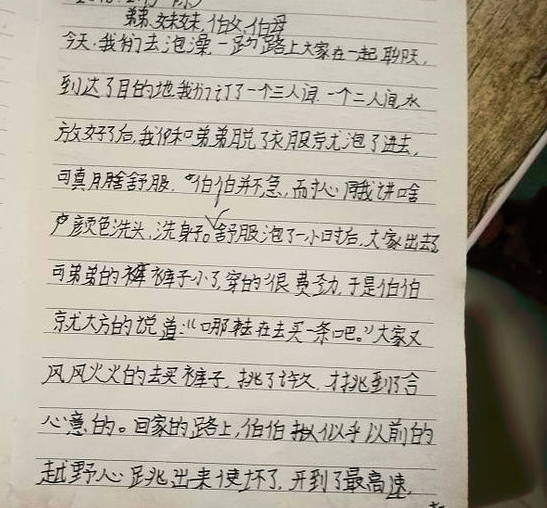 弟弟、妹妹、伯父、伯母
今天.我们去泡澡,一路上大家在一起聊天,
到达了目的地我们订了一个三人间.一个二人间,水
放好了后,我和弟弟脱了衣服就泡了进去,
可真月舒服,"伯伯并不急,而耐心同我讲啥
颜色洗头,洗身子。舒服泡了一小时后,大家出去了
可弟弟的裤裤子小了,穿的很费劲,于是伯伯
就大方的说道:“口那鞋在去买一条吧。”大家又
风风火火的去买裤子,挑了许久,才挑到了合
心意的。回家的路上,伯伯似乎以前的
越野心跳出来使坏了,开到了最高速,